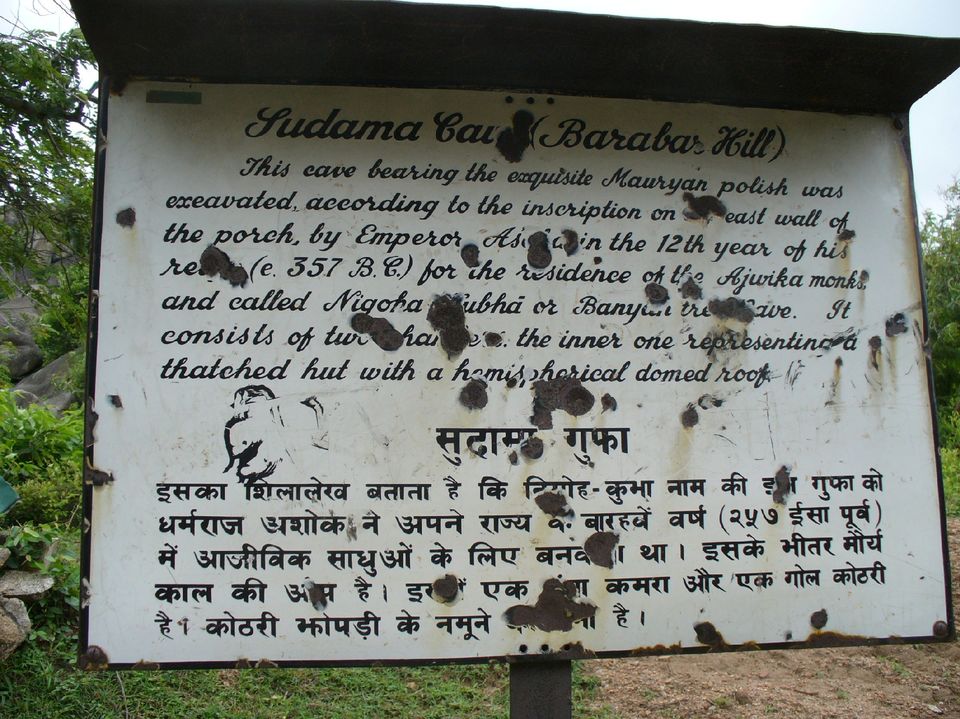 Sudama (Barabar Hill)
This cave bearing the exquisite Mauryan polish was
exeavated, according to the inscription on east wall of
the porch, by Emperor in the 12th year of his
(c. 357 B.C.) for the residence of the Ajwika monks,
and called Nigoha or Banyan Cave. It
consists of the inner one representing a
thatched hut with a hemispherical domed roof
सुदामा गुफा
इसका शिलालेख बताता है कि कुभा नाम की इस गुफा को
धर्मराज अशोक ने अपने राज्य के बारहवें वर्ष (२५७ ईसा पूर्व)
में आजीविक साधुओं के लिए था। इसके भीतर मौर्य
काल की है। एक कमरा और एक गोल कोठरी
है। कोठरी झोपड़ी के नमूने है।